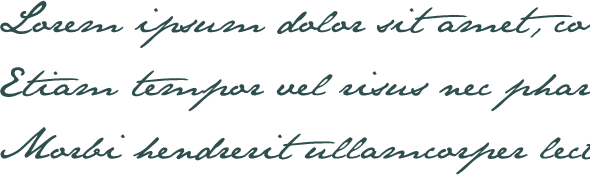 Lorem ipsum dolor sit amet, co
Etiam tempor vel risus nec phar
Morbi hendrerit ullamcorper lect